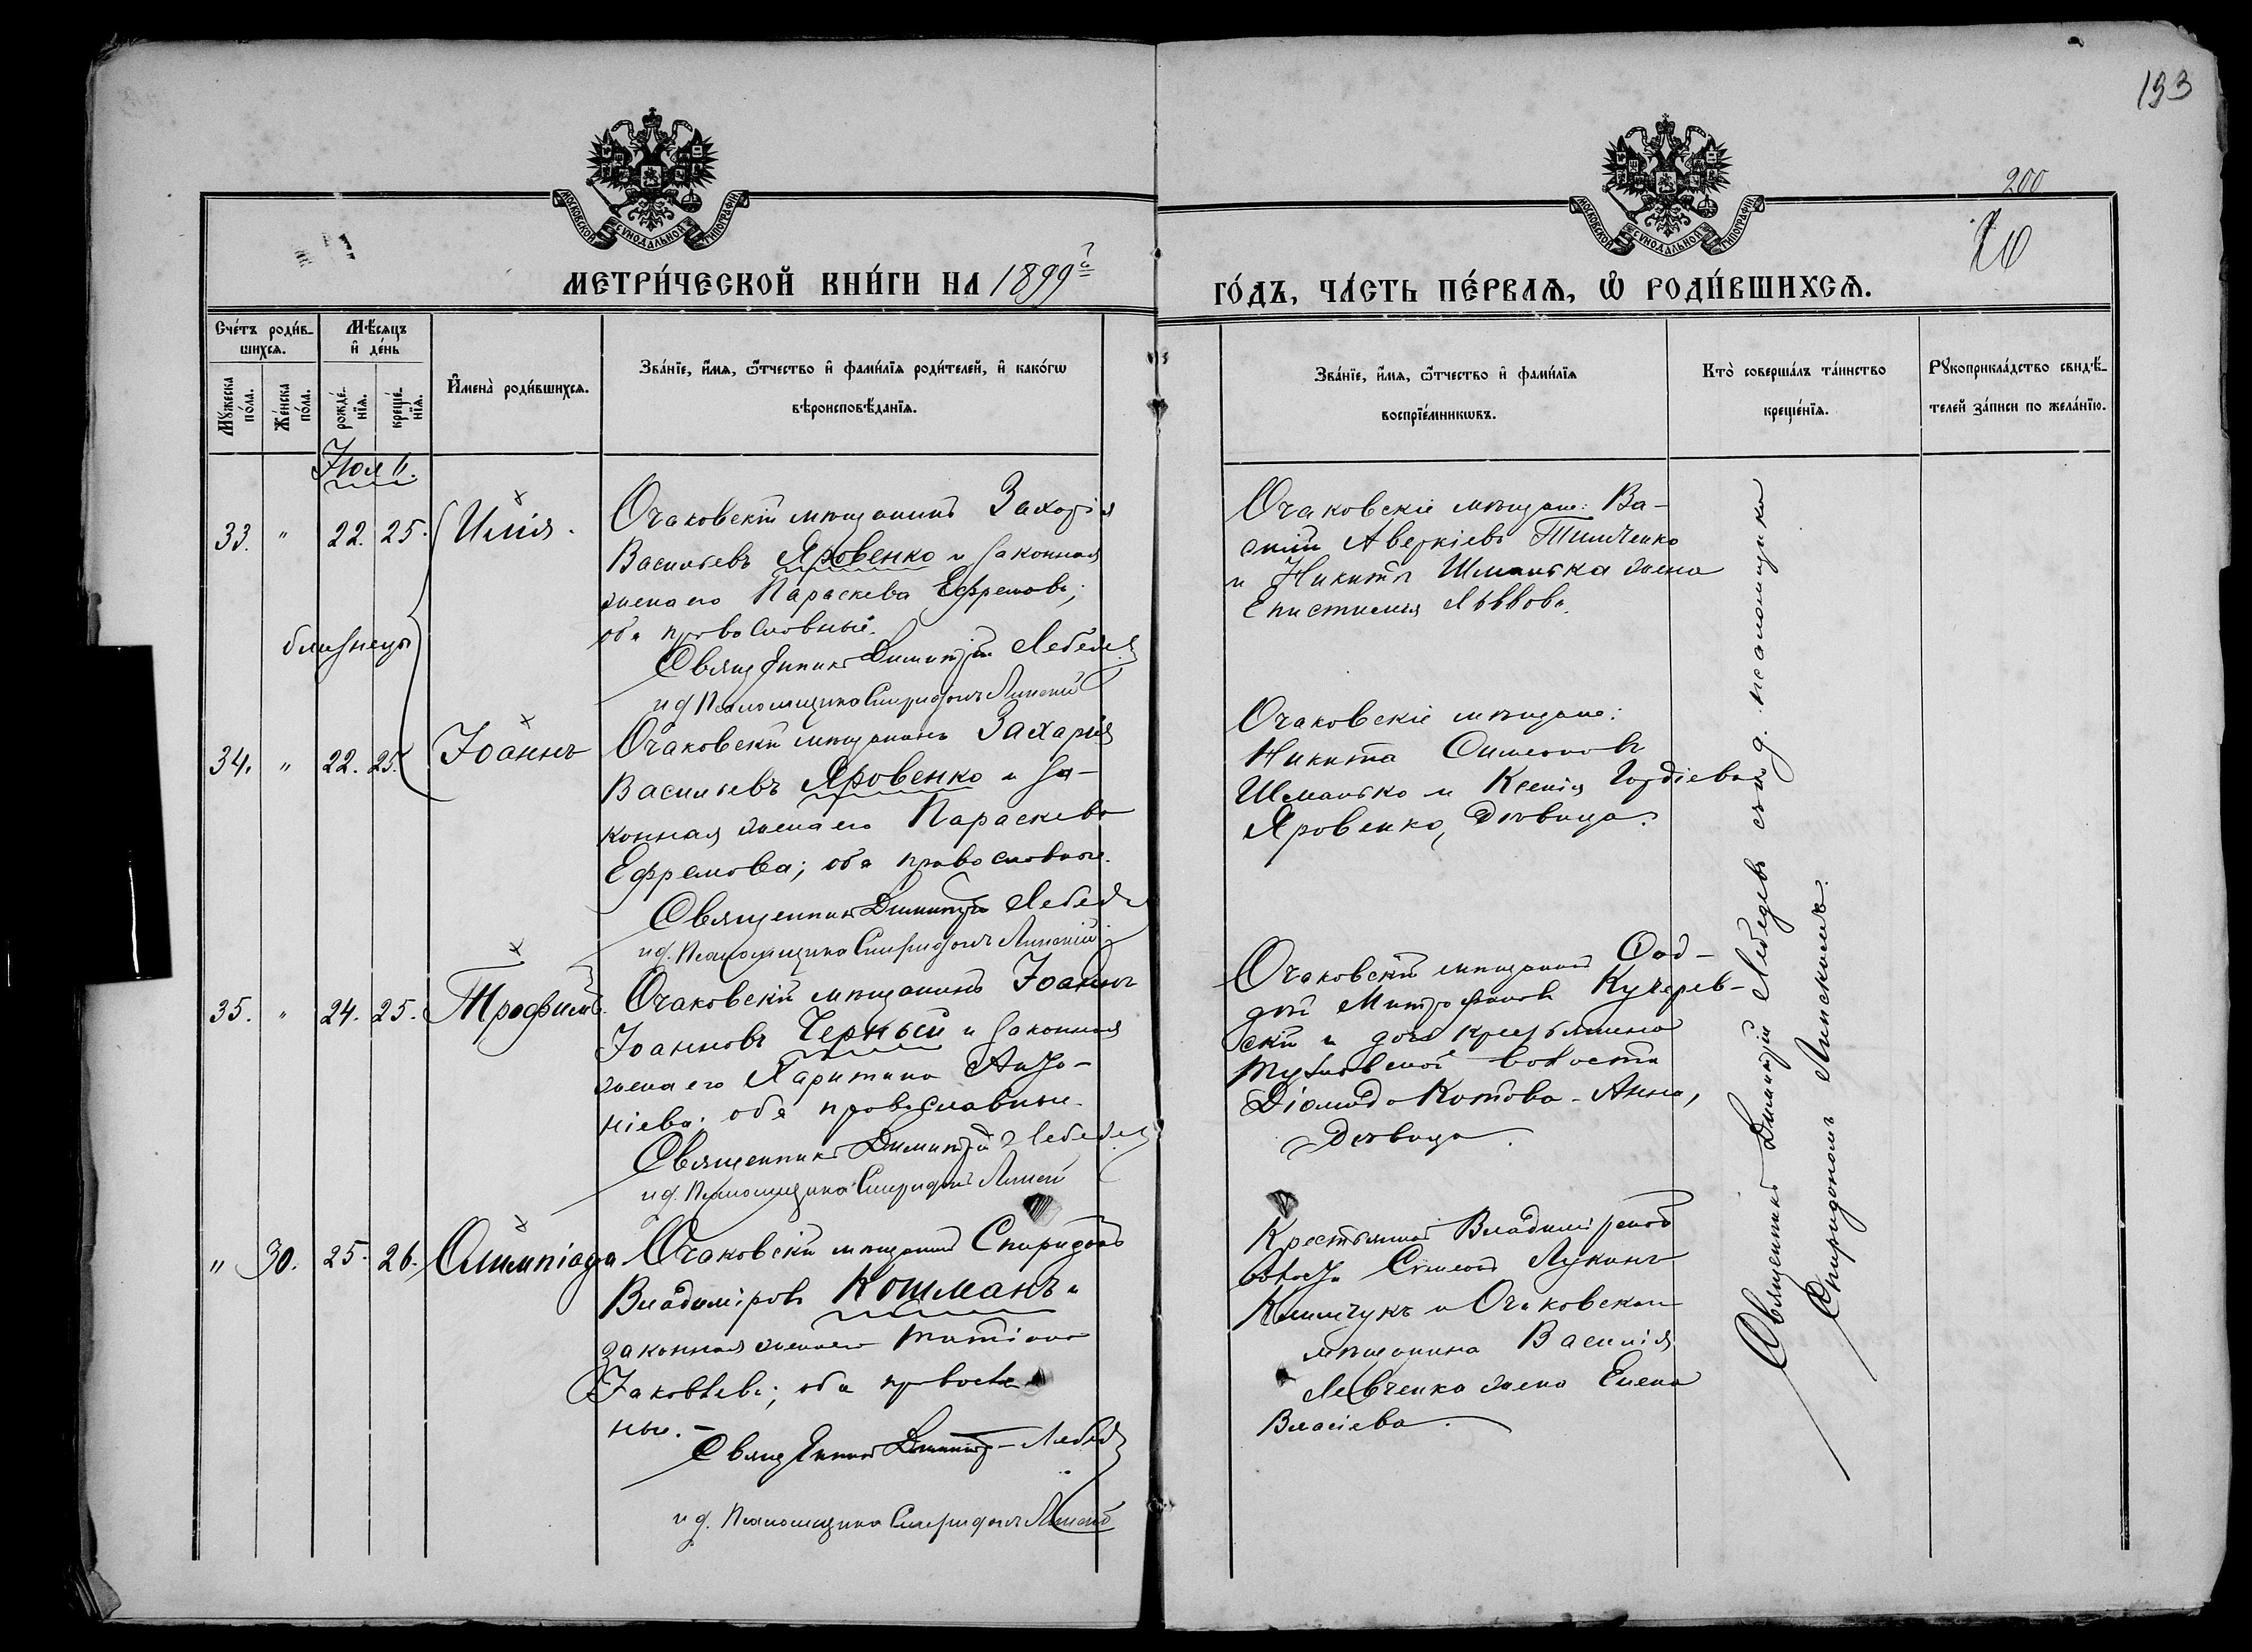 193
200
20
МОСКОВСКОЙ СѴНОДАЛЬНОЙ ТИПОГРАФІИ
МОСКОВСКОЙ СѴНОДАЛЬНОЙ ТИПОГРАФІИ
МЕТРИ́ЧЕСКОЙ КНИ́ГИ НА 1899й
ГО́ДЪ, ЧА́СТЬ ПЕ́РВАѦ, Ѡ҆ РОДИ́ВШИХСѦ.
Сче́тъ роди́в-
шихсѧ.
Мѣ́сѧцъ
и҆ де́нь
Мꙋ́жеска
по́ла.
Же́нска
по́ла.
рожде́-
нїѧ.
креще́-
нїѧ.
И҆мена̀ роди́вшихсѧ.
Зва́нїе, и҆́мѧ, ѻ҆́тчество и҆ фами́лїѧ роди́телей, и҆ како́гѡ
вѣроисповѣ́данїѧ.
Зва́нїе, и҆́мѧ, ѻ҆́тчество и҆ фами́лїѧ
воспрїе́мникѡвъ.
Кто̀ соверша́лъ та́инство
креще́нїѧ.
Рꙋкоприкла́дство свидѣ́-
телей за́писи по жела́нїю.
Іюль.
33. " 22. 25. Илія.
Очаковскій мѣщанинъ Захарія
Васильевъ Яровенко и законная
жена его Параскева Ефремова;
оба православные.
Священникъ Димитрій Лебедев
и д. Псаломщика Спиридонъ Липскій
Очаковскіе мѣщане: Ва-
силій Аверкіевъ Тимченко
и Никиты Шманька жена
Епистимія Львова.
близнецы
34. " 22. 25. Іоаннъ
Очаковскій мѣщанинъ Захарія
Васильевъ Яровенко и за-
конная жена его Параскева
Ефремова; оба православные.
Священникъ Димитрій Лебедев
и д. Псаломщика Спиридонъ Липскій
Очаковскіе мѣщане:
Никита Симеоновъ
Шманько и Ксенія Гордіева
Яровенко, дѣвица.
35. " 24. 25. Трофимъ.
Очаковскій мѣщанинъ Іоаннъ
Іоанновъ Черный и законная
жена его Харитина Анто-
ніева; оба православные.
Священникъ Димитрій Лебедев
и д. Псаломщика Спиридонъ Липскій
Очаковскій мѣщанинъ
Митрофановъ Кучерев-
скій и дочь крестьянина
волости
Діомида Котова - Анна,
Дѣвица.
" 30. 25. 26. Олимпіада
Очаковскій мѣщанинъ Спиридонъ
Владиміровъ Кошманъ и
законная жена его Татіана
Іаковлева; оба православ
ные.
Священникъ Димитрій Лебедев
и д. Псаломщика Спиридонъ Липскій
Крестьянинъ Владимірской
волости Симеонъ Лукинъ
Климчукъ и Очаковскаго
мѣщанина Василія
Левченко жена Елена
Власіева.
Священникъ Димитрій Лебедевъ съ и д. псаломщика
Спиридономъ Липскимъ.